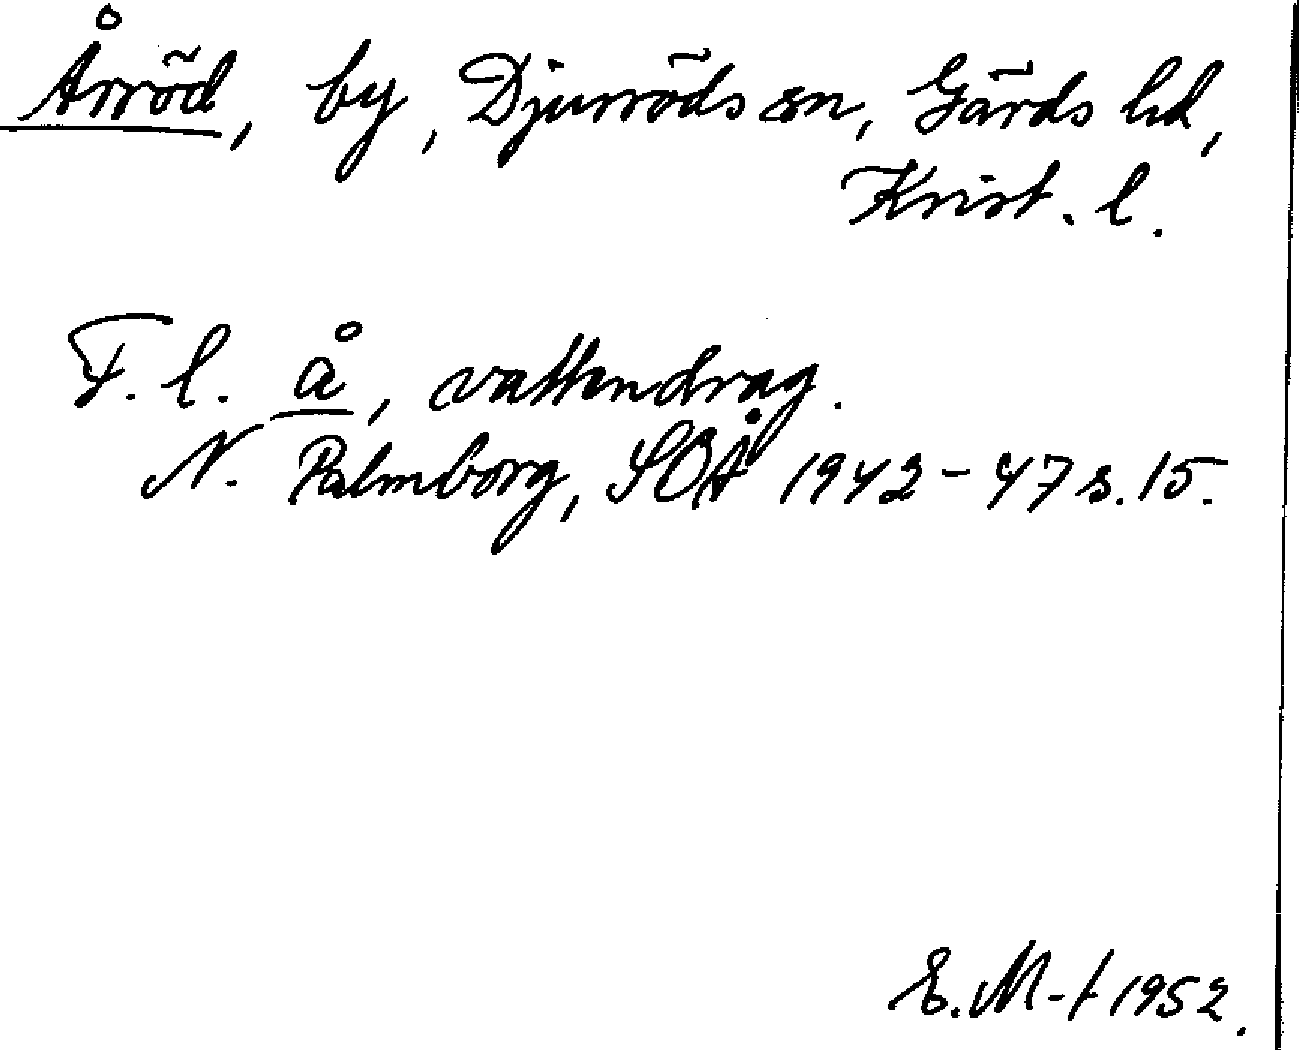 Årröd, by, Djurröds sn, Gärds hd,
Krist. l.
F. l. å, vattendrag.
N. Palmborg, SOÅ 1942-47 s. 15.
E. M-t 1952.